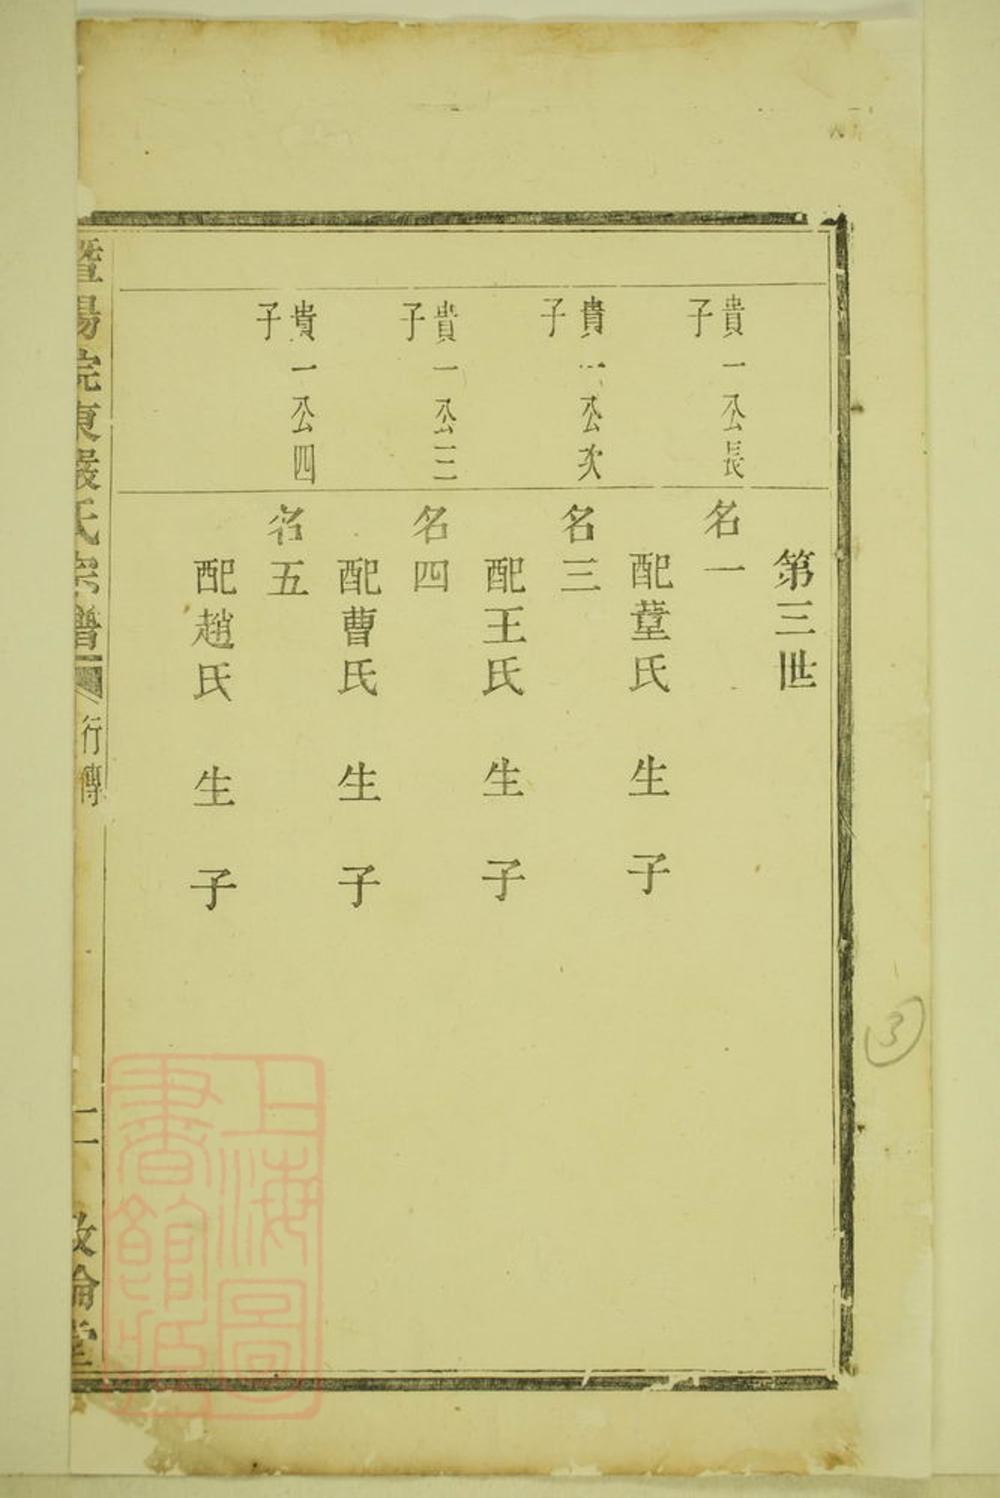 第三世
貴一公長
子
名一
配葷氏 生 子
貴一公次
子
名三
配王氏 生 子
貴一公三
子
名四
配曹氏 生 子
貴一公四
子
名五
配趙氏 生 子
暨陽院東嚴氏宗譜
行傳
二
敦倫堂
上海圖
書館藏
3